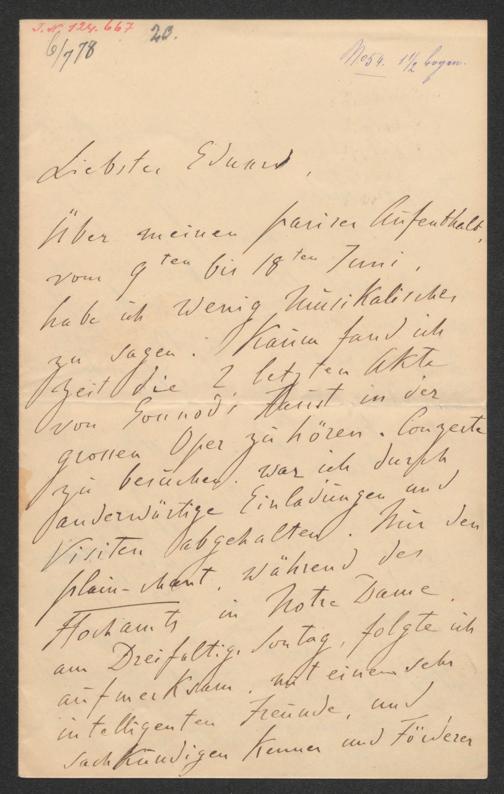 I.N. 124.667
6/7 78
23.
No 54. 1 1/2 bogen.
Liebster Eduard,
Über meinen pariser Aufenthalt,
vom 9ten bis 18ten Juni,
habe ich wenig Musikalisches
zu sagen. Kaum fand ich
Zeit die 2 letzten Akte
von Gounod's Faust in der
grossen Oper zu hören. Conzerte
zu besuchen war ich durch
anderwärtige Einladungen und
Visiten abgehalten. Nur den
plain-chant, während des
Hochamts in Notre Dame,
am Dreifaltigk. Sontag, folgte ich
aufmerksam, mit einem sehr
intelligenten Freunde, und
sachkundigen Kenner und Förderer